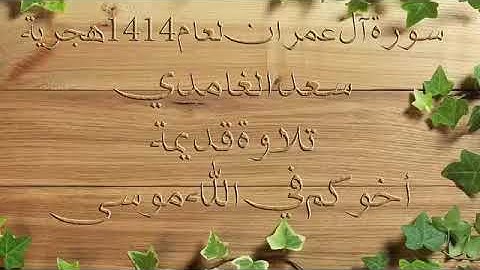 سورة آل عمران لعام 1414 هجرية
سعد الغامدي
تلاوة قديمة
أخوكم في الله موسى